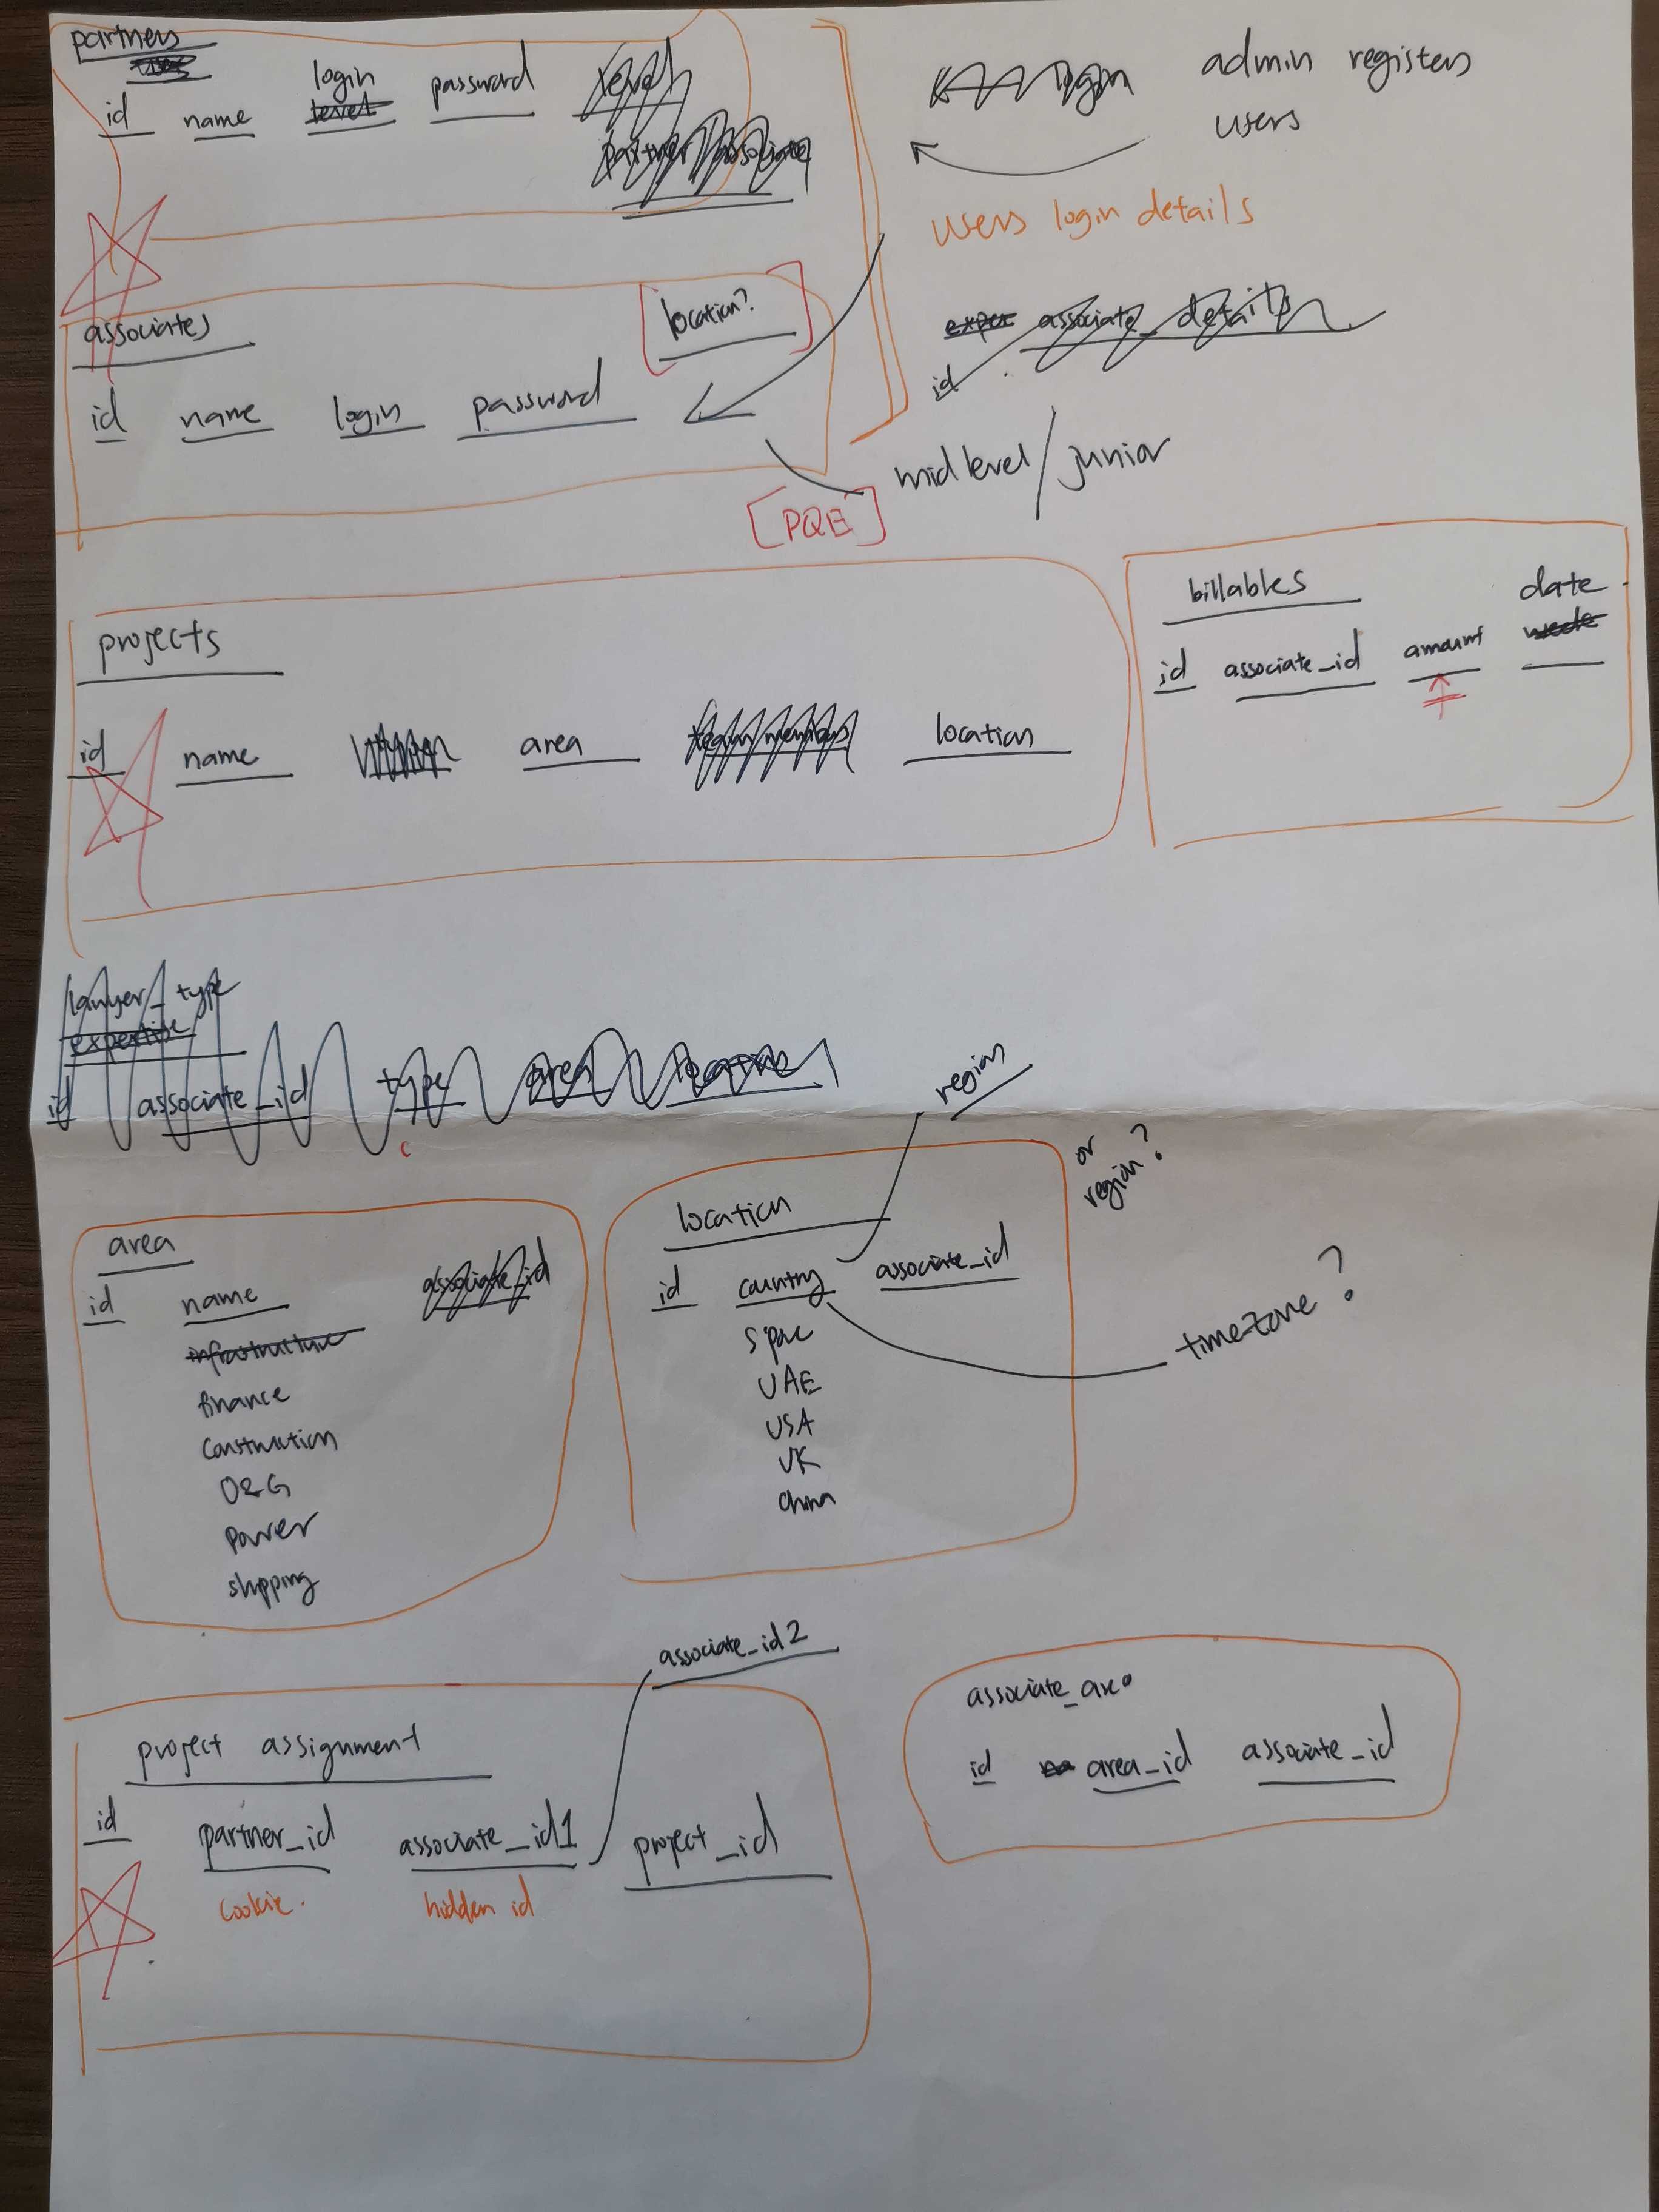 partners
users
login
id name level password level
partner / associate
login admin registers
users
users login details
associates
location?
id name login password
exper associate_details
id
midlevel / junior
[PQE]
projects
id name area team members location
billables
date
id associate_id amount week
lawyer_type
expertise
id associate_id type area location
region
or region?
area
id name associate_id
infrastructure
finance
construction
O&G
power
shipping
location
id country associate_id
S'pore
UAE
USA
UK
China
timezone?
associate_id2
project assignment
id partner_id associate_id1 project_id
cookie. hidden id
associate_area
id na area_id associate_id